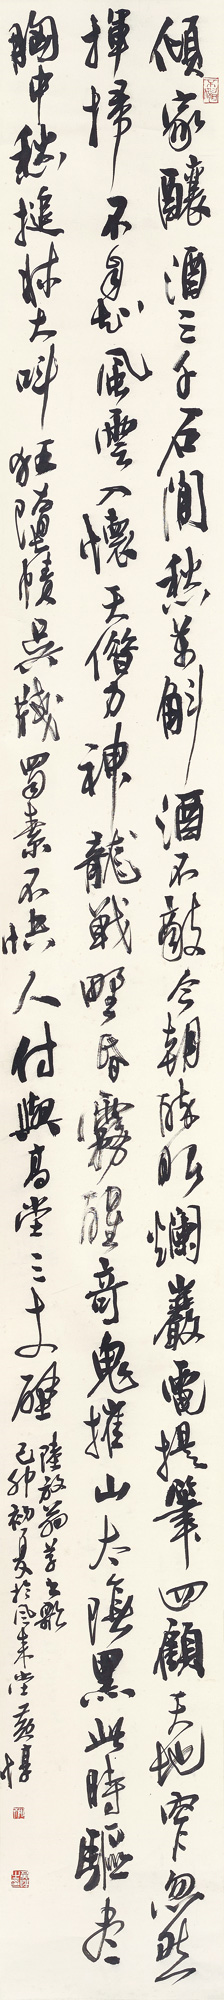 傾家釀酒三千石閒愁萬斛酒不敵今朝醉眼爛巖電提筆四顧天地窄忽然
揮掃不自知風雲入懷天借力神龍戰野昏霧腥奇鬼摧山太陰黑此時驅盡
胸中愁搥牀大叫狂墮幘吳牋蜀素不快人付與高堂三丈壁
陸放翁草書歌
己卯初夏於風來堂黃惇